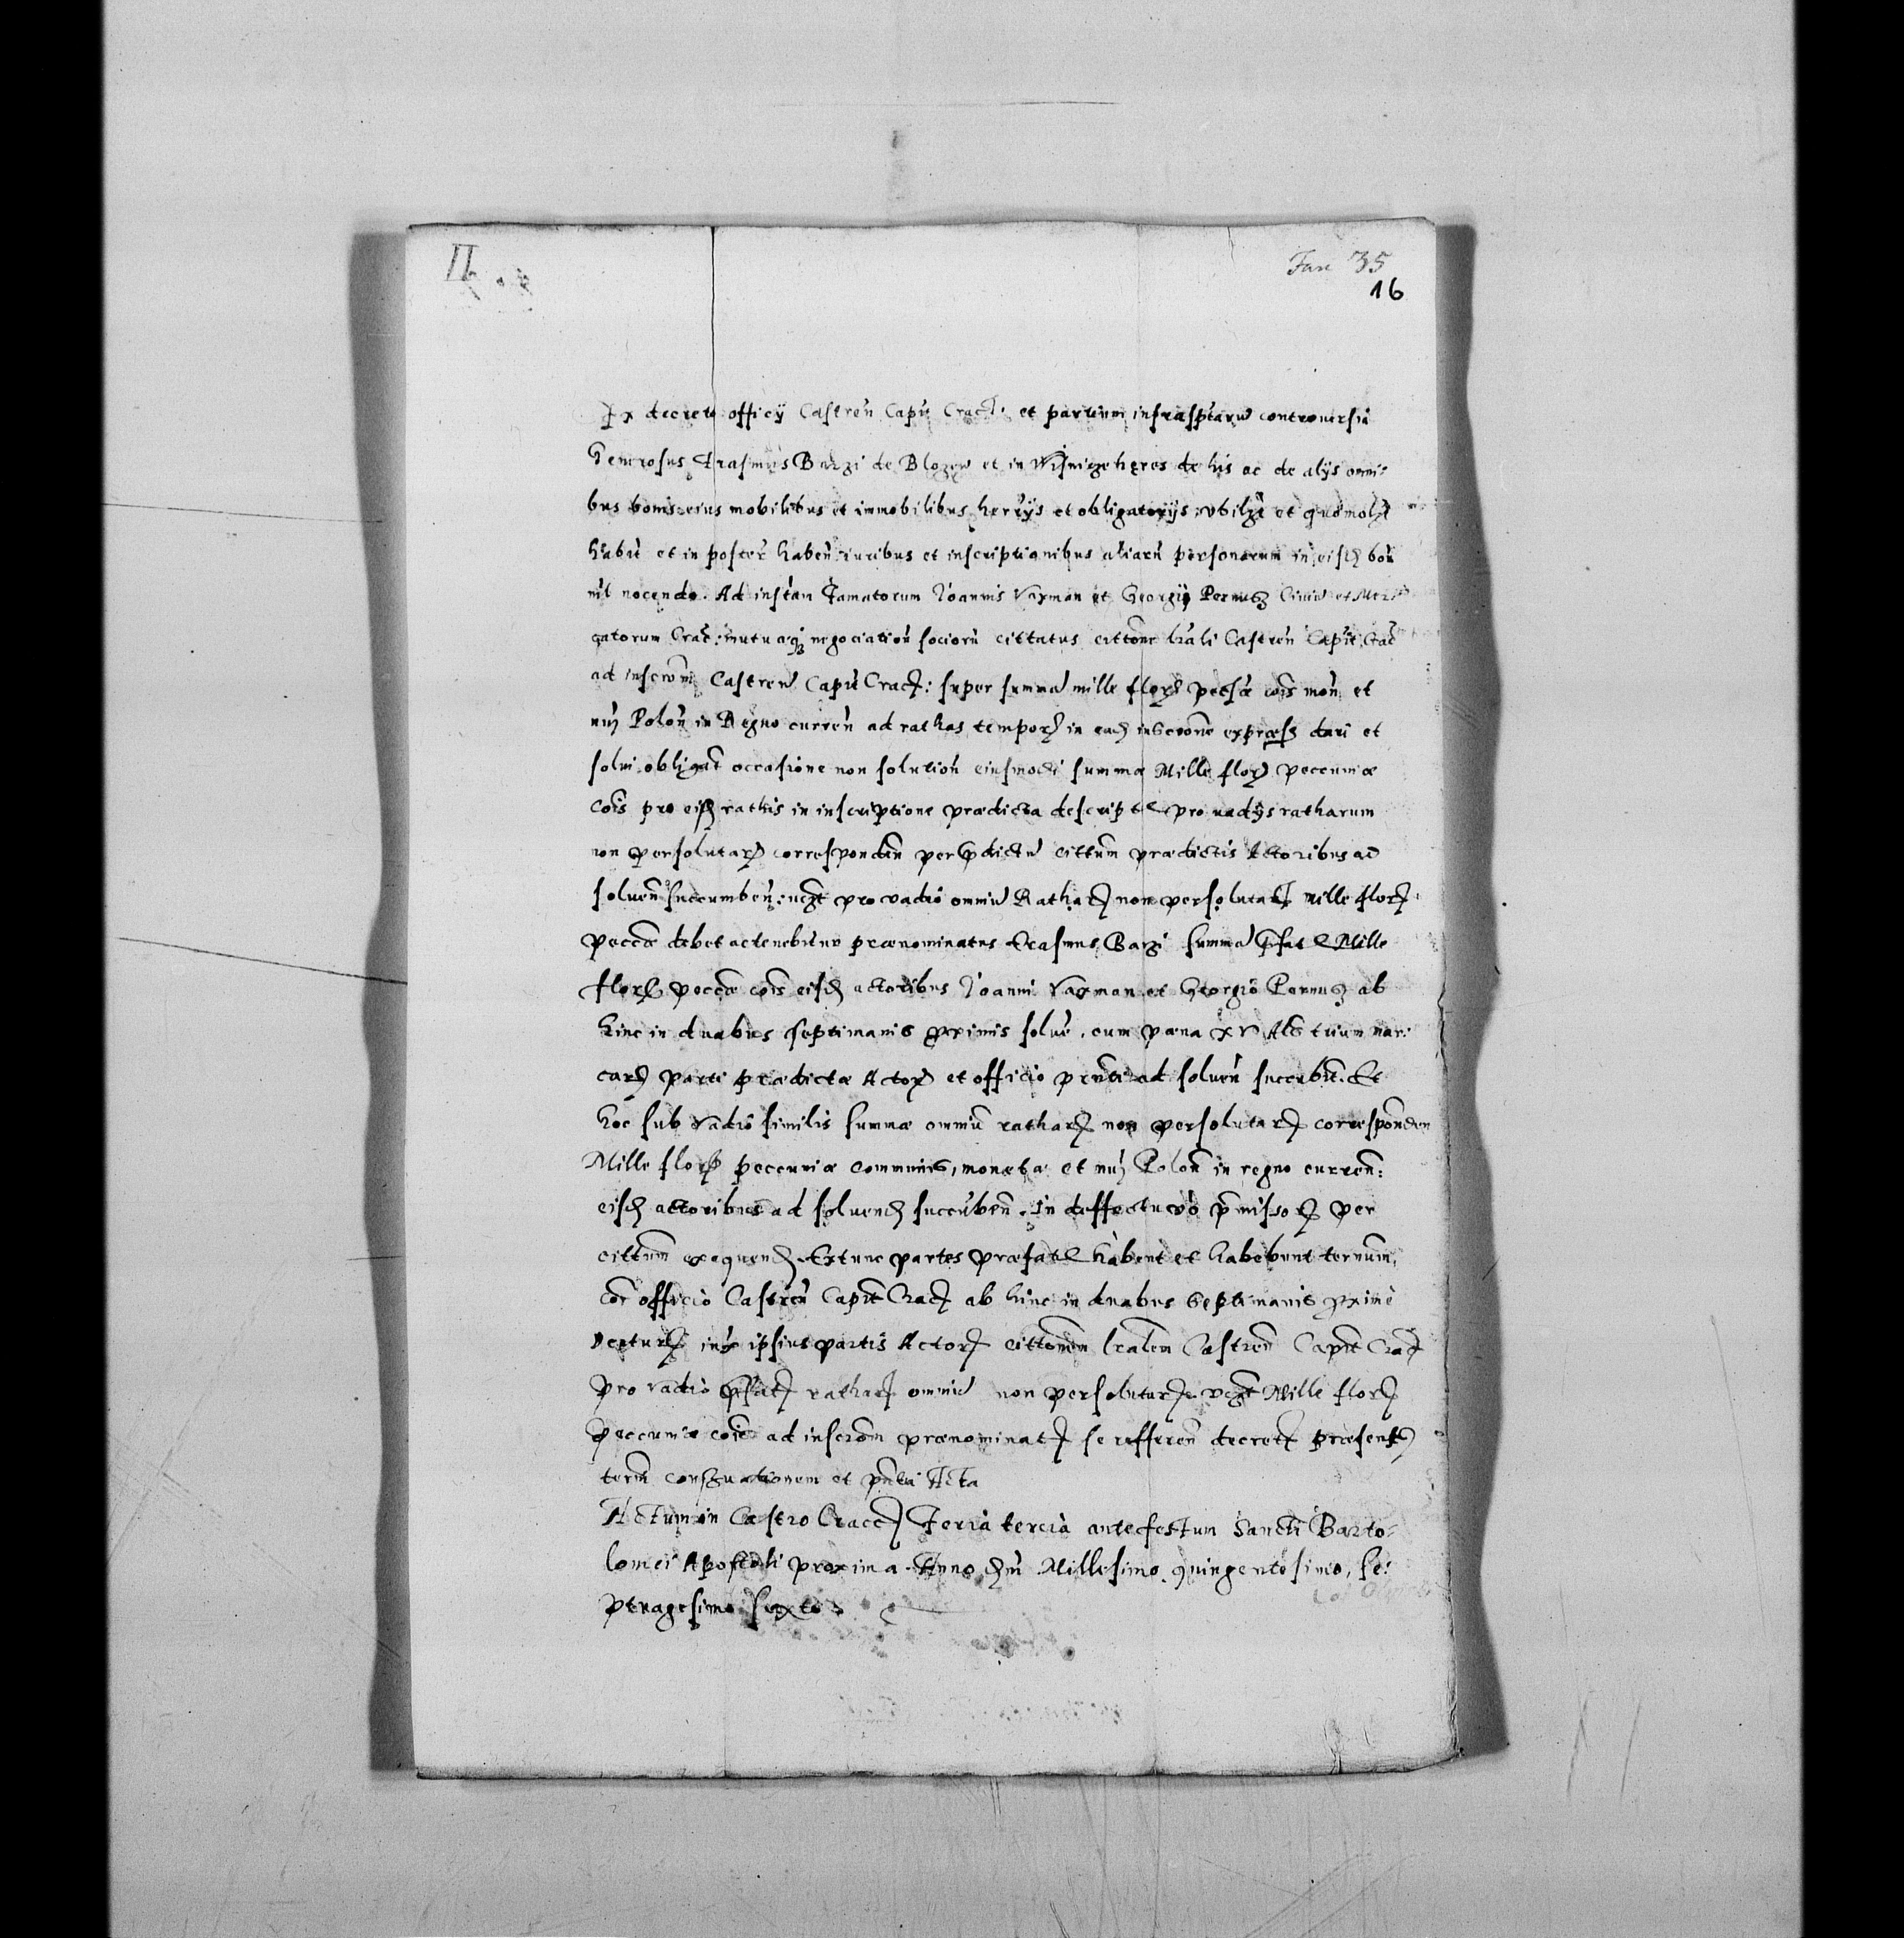 II
Fasc 35
16
Ex decreto officij Castren̄ Capit̄ Crac̄: et partium infrascptarum controuersia
Generosus Erasmus Barzi de Blozew et in Wisnicze heres de his ac de alijs omni-
bus bonis eius mobilibus et immobilibus hered̄ijs et obligatorijs vbilz̄t et quomolz̄t
habit̄ et in poster̄ haben̄ iuribus et inscriptionibus aliarū personarum in eisd̄ bon̄
nil nocendo. Ad instan̄ Famatorum Joannis Vaxman et Georgij Pernusz Ciuiū et Mer-
catorum Crac̄: mutuaqz negociation̄ sociorū cittatus citto̅ne lr̄ali Castren̄ Capit̄ Crac̄
ad inscro̅m Castren̄ Capit̄ Crac̄: super summā mille flor̄ pec̄cæ co̅is mon̄ et
nu̅j Polon̄ in Regno curren̄ ad rathas tempor̄ in ead̄ inscro̅ne express̄ dari et
solui obligat̄ occasione non solution̄ eiusmodi summæ Mille flor̄ peccuniæ
co̅is pro eisd̄ rathis in inscriptione prædicta descriptę pro vadijs ratharum
non persolutar̄ corresponden̄ per p̄dictū cittum prædictis Actoribus ad
soluen̄ succumben̄: vcz̄t pro vadio omniū Rathar̄ non persolutar̄ mille flor̄
peccæ debet ac tenebitur prænominatus Erasmus Barzi summā p̄fatę Mille
flor̄ peccæ co̅is eisd̄ actoribus Joanni Vaxman et Georgio Pernusz ab
hinc in duabus septimanis pxīmis soluē. cum pæna XV als trium mar-
car̄ parti prædictæ Actor̄ et officio pr̄nti ad soluen̄ succubit̄. Et
hoc sub vadio similis summæ omniū rathar̄ non persolutar̄ corresponden̄
Mille flor̄ peccuniæ communis, monetæ et nu̅j Polon̄ in regno curren̄:
eisd̄ actoribus ad soluend̄ succuben̄. In deffectu vo̅ p̄missor̄ per
cittum exequend̄. Extunc partes præfatę habent et habebunt ternum,
cor̄ officio Castren̄ Capit̄ Crac̄ ab hinc in duabus Septimanis pxīme
venturis̄ iux̄ ipsius partis Actor̄ citto̅nem lr̄alem Castren̄ Capit̄ Crac̄
pro vadio p̄fat̄ rathar̄ omniū non persolutar̄ vcz̄t Mille flor̄
peccuniæ co̅is ad inscro̅m prænominat̄ se refferen̄ decret̄ præsent̄
term̄ conseruationem et pn̄tia Acta
Actum in Castro Cracc̄ Feria tercia ante festum Sancti Barto-
lomei Apostoli proxima. Anno dn̄i Millesimo quingentesimo, se-
ptuagesimo sexto